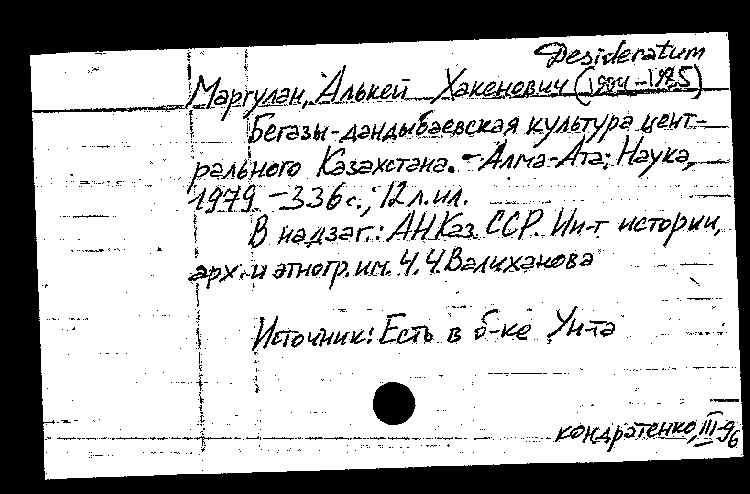 Desideratum
Маргулан, Алькей Хакенович (1904-1985)
Бегазы-дандыбаевская культура цент-
рального Казахстана. - Алма-Ата: Наука,
1979. - 336 с.; 12 л. ил.
В надзаг.: АН Каз. ССР. Ин-т истории,
арх. и этногр. им. Ч. Ч. Валиханова
Источник: Есть в б-ке Ун-та
Кондратенко, III-96